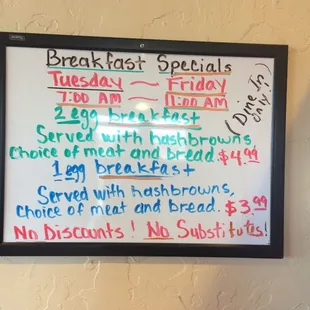 Breakfast Specials
Tuesday ~ Friday
7:00 AM - 11:00 AM
(Dine In only!)
2 egg breakfast
Served with hashbrowns,
choice of meat and bread $4.99
1 egg breakfast
Served with hashbrowns,
choice of meat and bread. $3.99
No Discounts! No Substitutes!